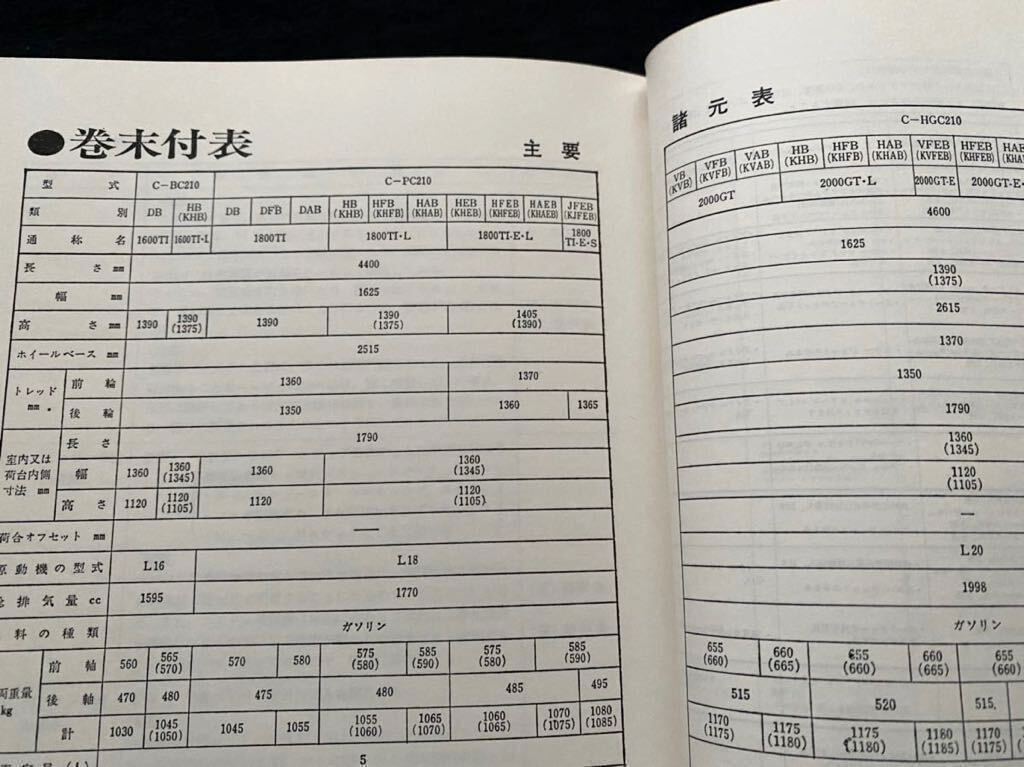 ●巻末付表 主要
型式 C-BC210 C-PC210
類別 DB HB(KHB) DB DFB DAB HB(KHB) HFB(KHFB) HAB(KHAB) HEB(KHEB) HFEB(KHFEB) HAEB(KHAEB) JFEB(KJFEB)
通称名 1600TI 1600TI・L 1800TI 1800TI・L 1800TI・E・L 1800TI・E・S
長さ mm 4400
幅 mm 1625
高さ mm 1390 1390(1375) 1390 1390(1375) 1405(1390)
ホイールベース mm 2515
トレッド mm 前輪 1360 1370
後輪 1350 1360 1365
室内又は荷台内側寸法 mm 長さ 1790
幅 1360 1360(1345) 1360 1360(1345)
高さ 1120 1120(1105) 1120 1120(1105)
荷台オフセット mm —
原動機の型式 L16 L18
排気量 cc 1595 1770
料の種類 ガソリン
両重量 kg 前軸 560 565(570) 570 580 575(580) 585(590) 575(580) 585(590)
後軸 470 480 475 480 485 495
計 1030 1045(1050) 1045 1055 1055(1060) 1065(1070) 1060(1065) 1070(1075) 1080(1085)
5
諸元表
C-HGC210
VB(KVB) VFB(KVFB) VAB(KVAB) HB(KHB) HFB(KHFB) HAB(KHAB) VFEB(KVFEB) HFEB(KHFEB) HAE
2000GT 2000GT・L 2000GT-E 2000GT-E・
4600
1625
1390(1375)
2615
1370
1350
1790
1360(1345)
1120(1105)
—
L20
1998
ガソリン
655(660) 660(665) 655(660) 660(665) 655(660)
515 520 515.
1170(1175) 1175(1180) 1175(1180) 1180(1185) 1170(1175) 1175(11